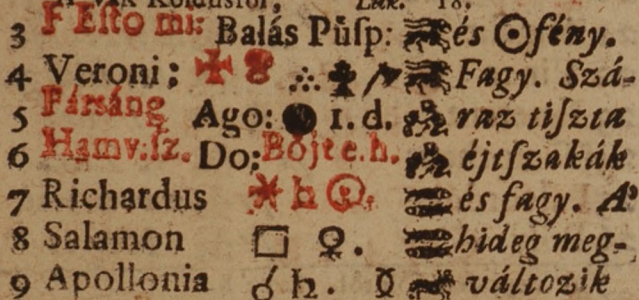 Vak Koldusról, Luk. 18.
3 F Esto mi: Balás Püſp: és ☉ fény.
4 Veroni; Fagy. Szá-
5 Fársáng Ago: ● 1. d. raz tiſzta
6 Hamv.ſz. Do; Bőjt e. h. éjtſzakák
7 Richardus ⚹ ♄ ☉. és fagy. A'
8 Salamon □ ♀. hideg meg-
9 Apollonia ☌ ♄. ☿ változik